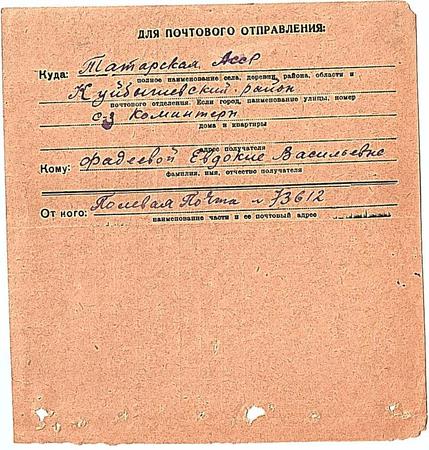 ДЛЯ ПОЧТОВОГО ОТПРАВЛЕНИЯ:
Куда: Татарская Асср
полное наименование села, деревни, района, области и
Куйбышевский район
почтового отделения. Если город, наименование улицы, номер
с/з Коминтерн
дома и квартиры
адрес получателя
Кому: Фадеевой Евдокие Васильевне
фамилия, имя, отчество получателя
От кого: Полевая Почта № 73612
наименование части и ее почтовый адрес